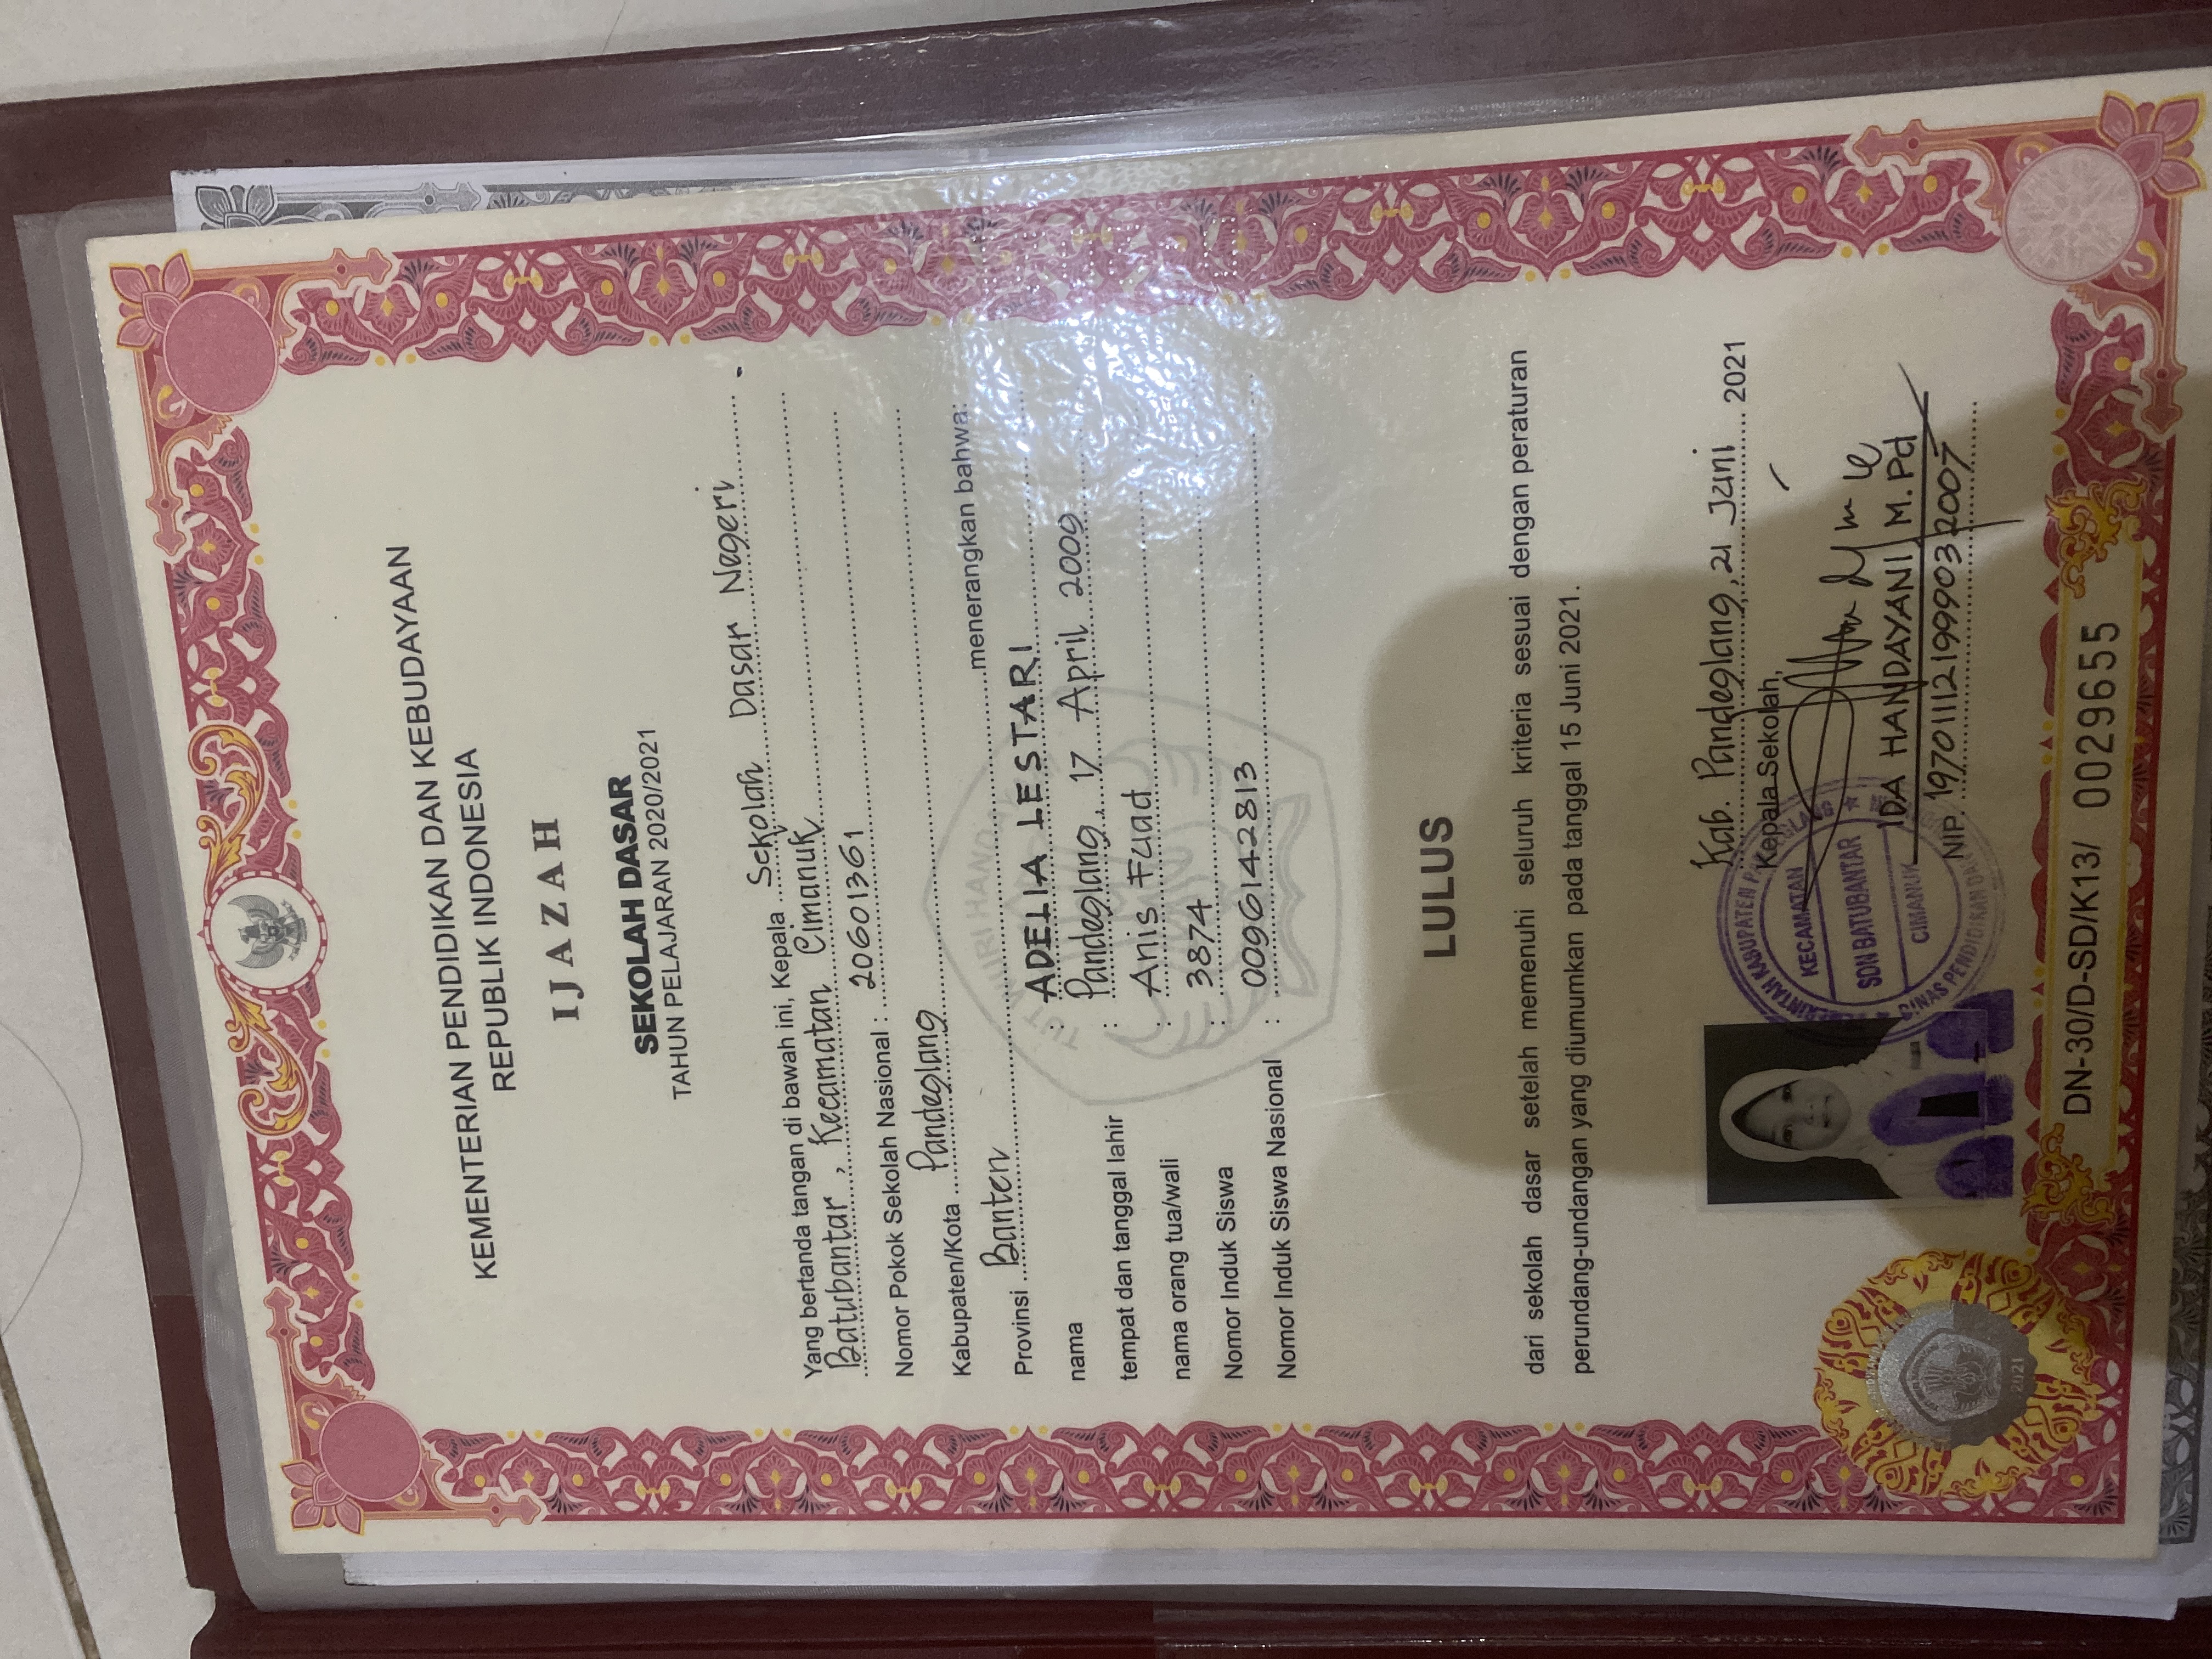 KEMENTERIAN PENDIDIKAN DAN KEBUDAYAAN
REPUBLIK INDONESIA
IJAZAH
SEKOLAH DASAR
TAHUN PELAJARAN 2020/2021
Yang bertanda tangan di bawah ini, Kepala Sekolah Dasar Negeri
Batubantar, Kecamatan Cimanuk
Nomor Pokok Sekolah Nasional : 20601361
Kabupaten/Kota Pandeglang
Provinsi Banten menerangkan bahwa:
nama : ADELIA LESTARI
tempat dan tanggal lahir : Pandeglang, 17 April 2009
nama orang tua/wali : Anis Fuad
Nomor Induk Siswa : 3874
Nomor Induk Siswa Nasional : 0096142813
TUT WURI HANDAYANI
LULUS
dari sekolah dasar setelah memenuhi seluruh kriteria sesuai dengan peraturan
perundang-undangan yang diumumkan pada tanggal 15 Juni 2021.
Kab. Pandeglang, 21 Juni 2021
Kepala Sekolah,
PEMERINTAH KABUPATEN PANDEGLANG
KECAMATAN
SDN BATUBANTAR
CIMANUK
DINAS PENDIDIKAN DAN
IDA HANDAYANI, M.Pd
NIP. 197011121999032007
2021
DN-30/D-SD/K13/ 0029655